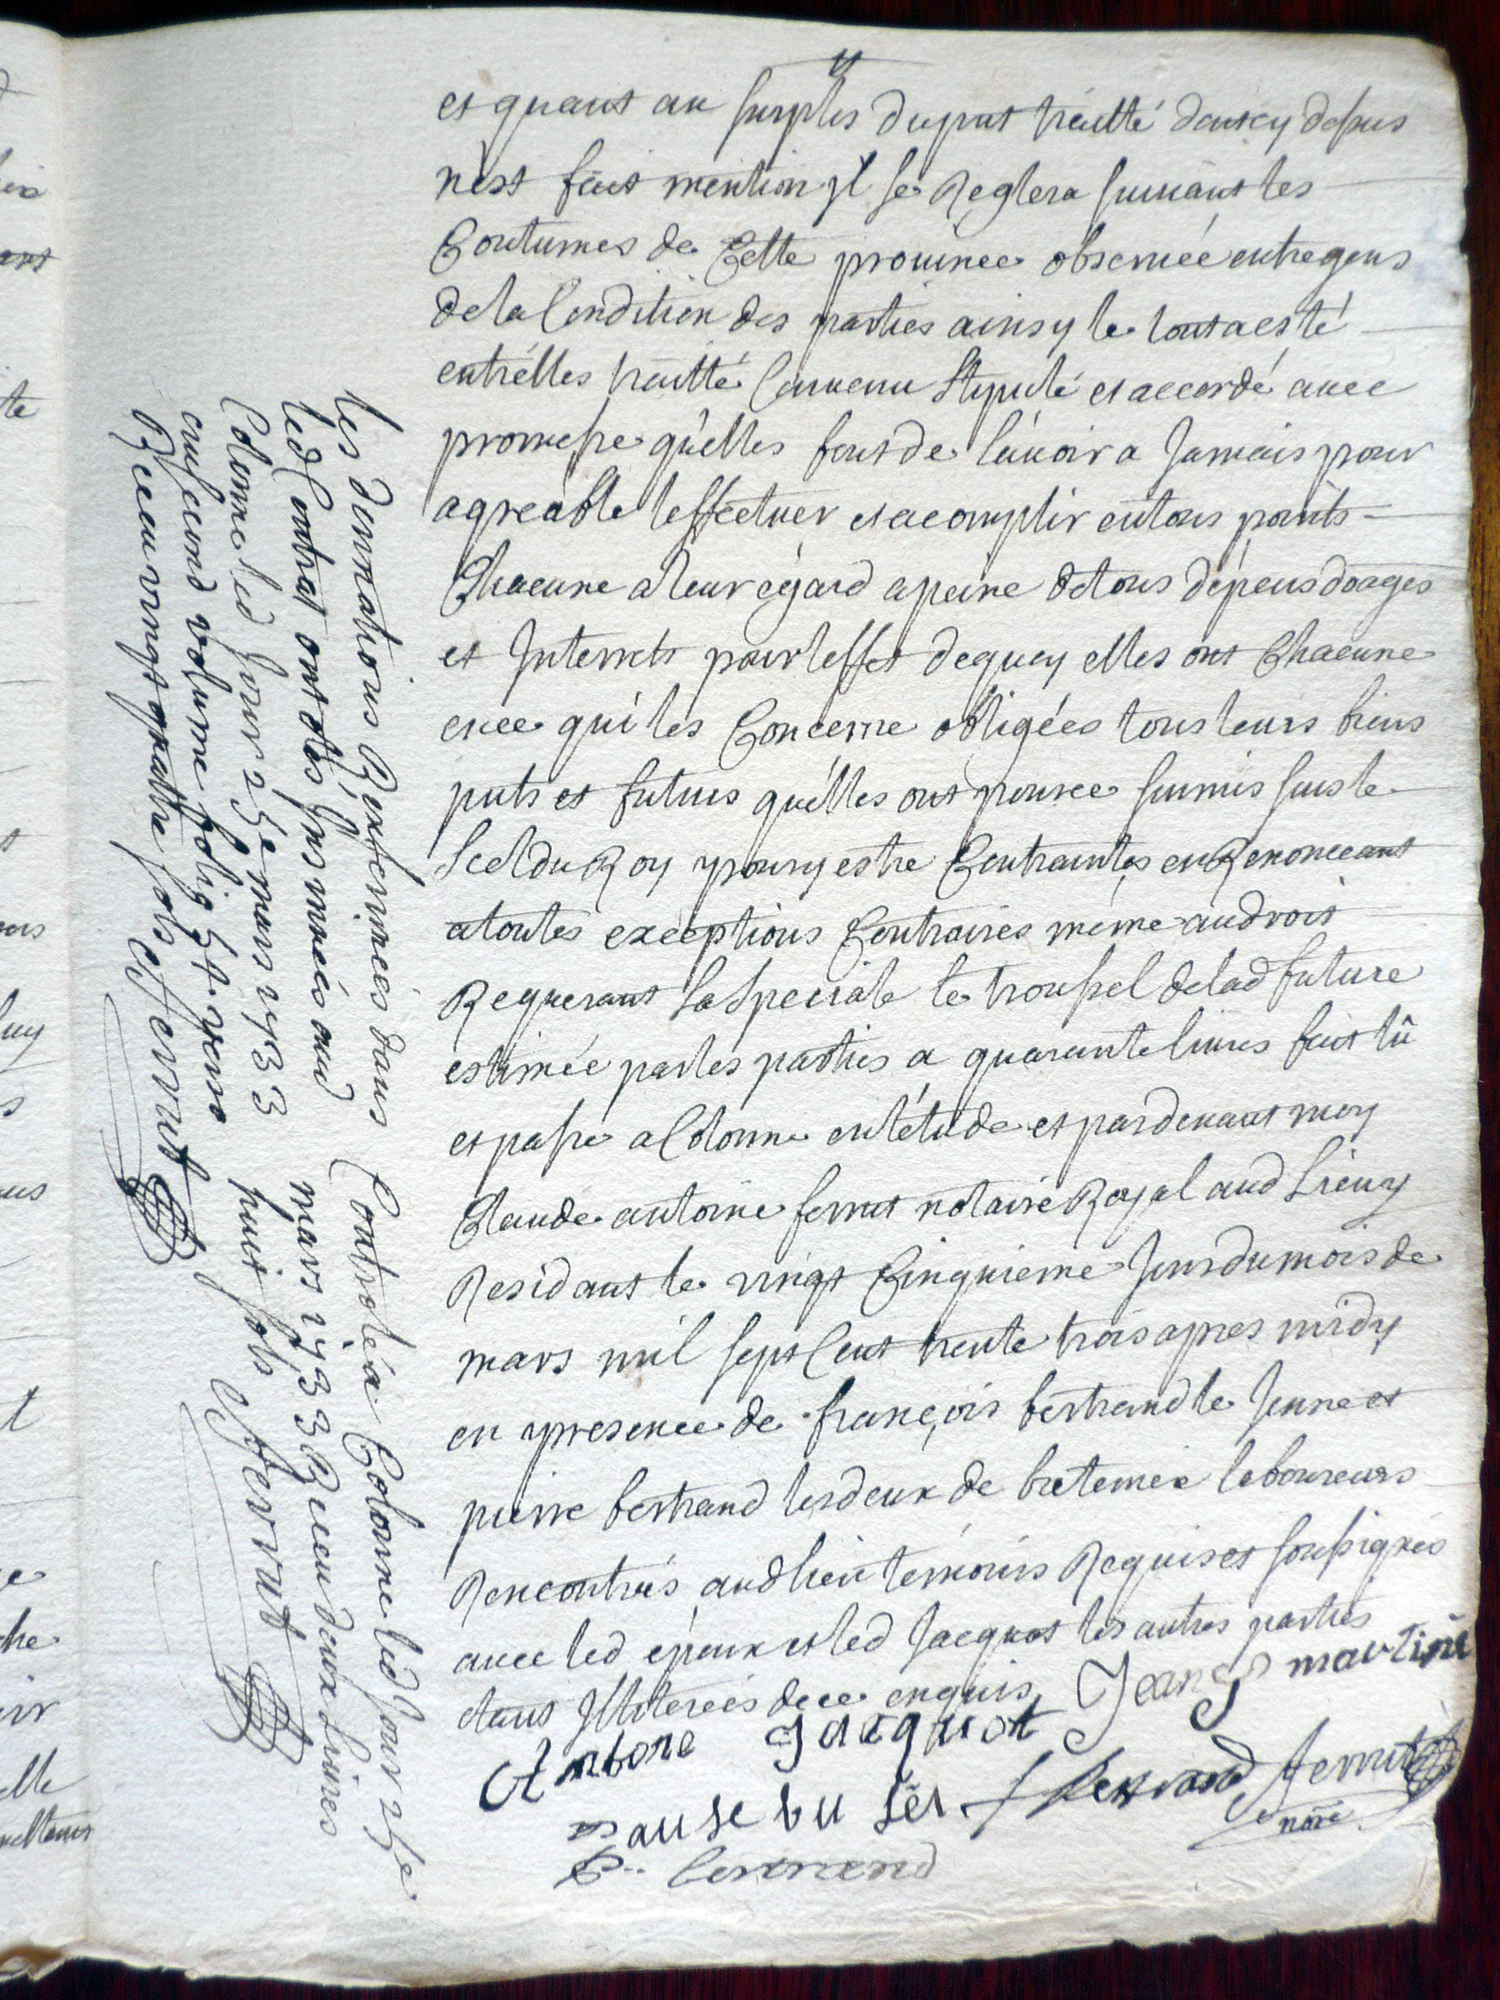 et quant au surplus du pnt traitté dont cy dessus
n'est fait mention il se Reglera suivant les
Coutumes de Cette province observée entre gens
de la Condition des parties ainsy le tout a esté
entr'elles traitté Convenu stipulé et accordé avec
promesse qu'elles font de l'avoir a Jamais pour
agreable l'effectuer et accomplir en tous points
Chacune a leur egard a peine de tous depens doages
et Interrets pour l'effet de quoy elles ont Chacune
en ce qui les Concerne obligées tous leurs biens
pnts et futurs qu'elles ont pour ce sumis sus le
Scel du Roy pour y estre Contraintes en Renonceant
a toutes exceptions Contraires meme au droit
Requerant la Speciale le troussel de lad future
estimée par les parties a quarante livres fait lû
et passé a Colonne en l'étude et pardevant moy
Claude antoine ferrut notaire Royal aud Lieu y
Residant le vingt Cinquieme Jour du mois de
mars mil sept Cent trente trois apres midy
en presence de françois bertrand le Jeune et
pierre bertrand les deux de laboureurs
Rencontrés aud lieu temoins Requis et soussignés
avec led epoux et led Jacquot les autres parties
étans Illiterées de ce enquis
Jean martin
Antone Jacquot
f Bertrand ferrut
nore
P. bertrand
les donnations Renfermées dans
led Contrat ont étés Insinuées aud
Colonne led Jour 25e mars 1733
au second volume folio 54 verso
Receu vingt quattre sols CFerrut
Controlé a Colonne led Jour 25e
mars 1733 Receu deux Livres
huit sols CFerrut